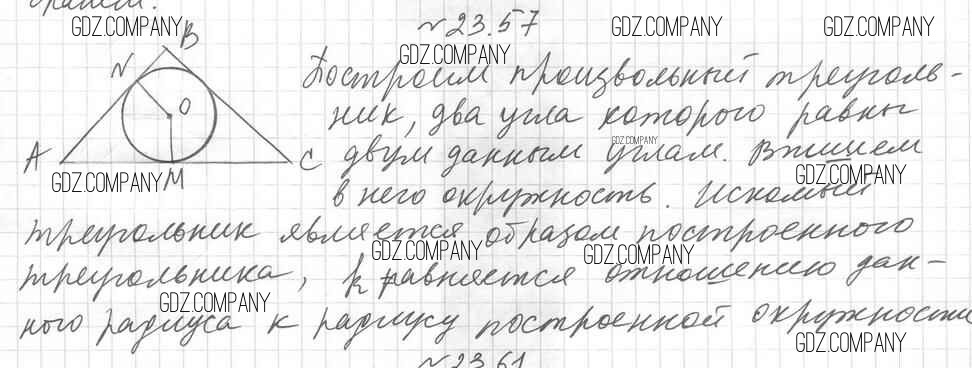 GDZ.COMPANY
№23.57
GDZ.COMPANY
GDZ.COMPANY
GDZ.COMPANY
N B
O
A C
M
Построим произвольный треуголь-
ник, два угла которого равны
GDZ.COMPANY
двум данным углам. Впишем
GDZ.COMPANY
GDZ.COMPANY
в него окружность. Искомый
треугольник является образом построенного
GDZ.COMPANY
GDZ.COMPANY
треугольника, k равняется отношению дан-
GDZ.COMPANY
ного радиуса к радиусу построенной окружности
GDZ.COMPANY
№23.61